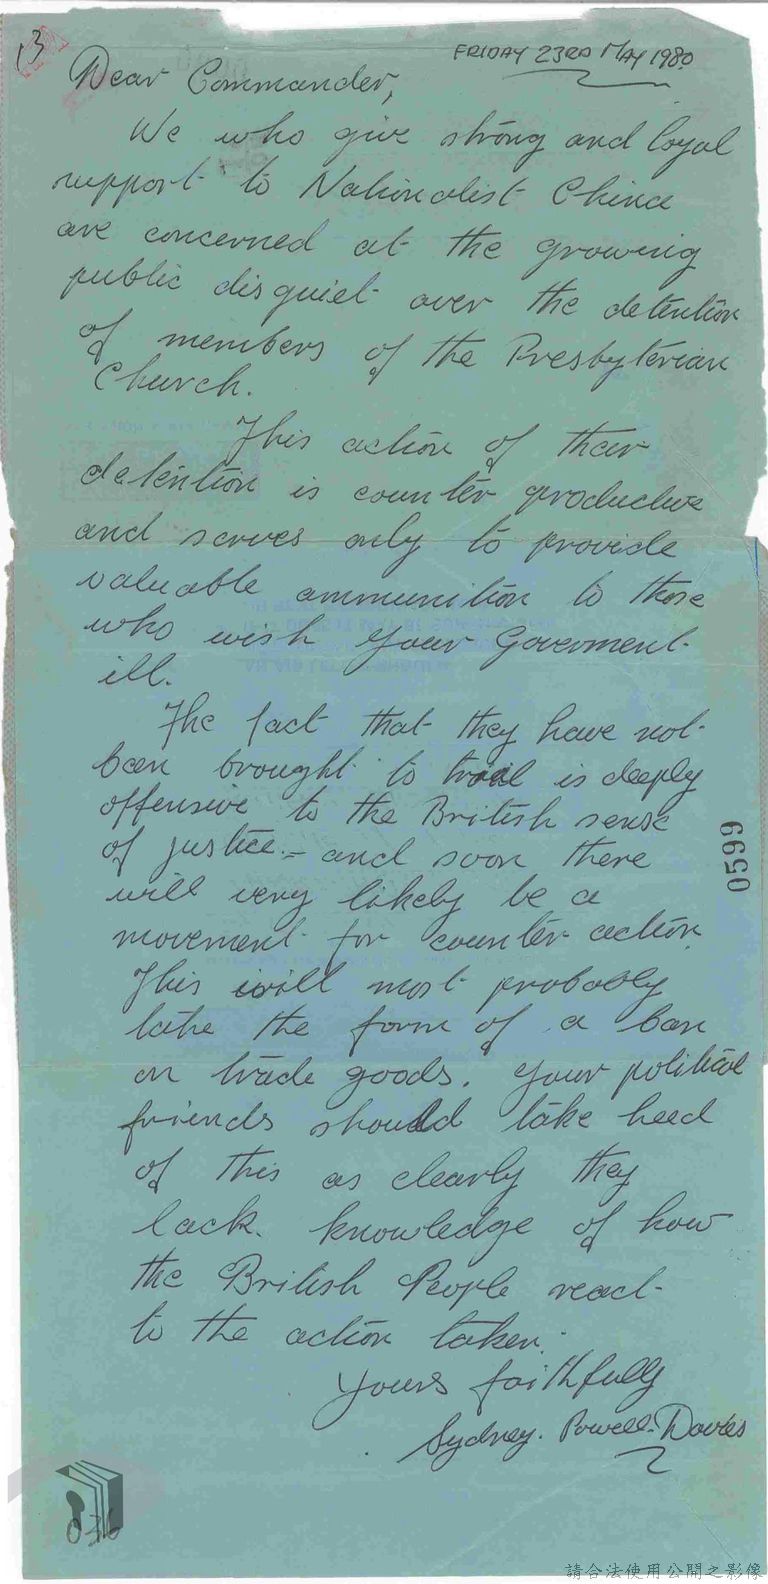 13
FRIDAY 23RD MAY 1980.
Dear Commander,
We who give strong and loyal
support to Nationalist China
are concerned at the growing
public disquiet over the detention
of members of the Presbyterian
Church.
This action of their
detention is counter productive
and serves only to provide
valuable ammunition to those
who wish your Goverment
ill.
The fact that they have not
been brought to trial is deeply
offensive to the British sense
of justice. – and soon there
will very likely be a
movement for counter action.
This will most probably
take the form of a ban
on trade goods. Your political
friends should take heed
of this as clearly they
lack knowledge of how
the British People react
to the action taken.
Yours faithfully
Sydney. Powell-Davies
0599
036
請合法使用公開之影像